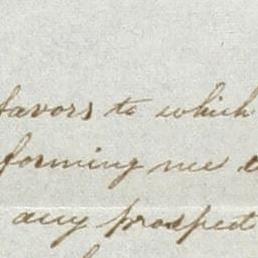 favors to which
forming me
any prospect